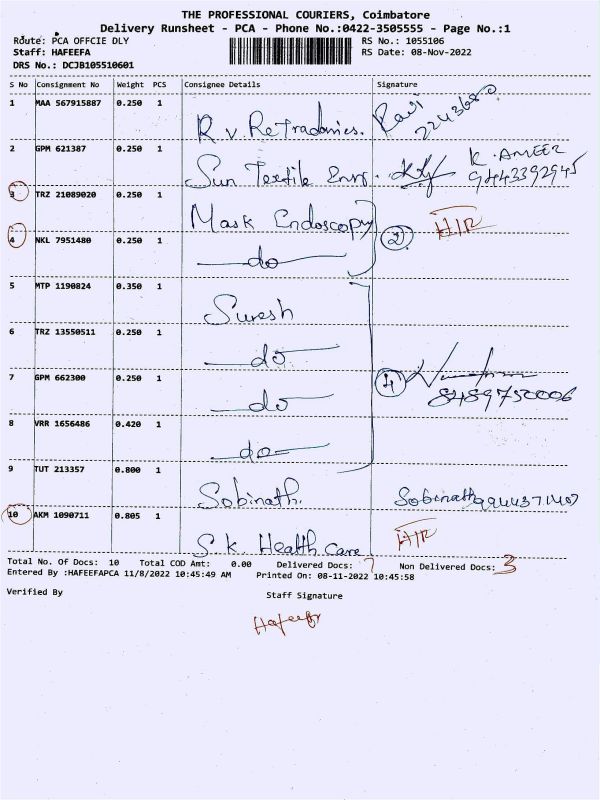 THE PROFESSIONAL COURIERS, Coimbatore
Delivery Runsheet - PCA - Phone No.:0422-3505555 - Page No.:1
Route: PCA OFFCIE DLY RS No.: 1055106
Staff: HAFEEFA RS Date: 08-Nov-2022
DRS No.: DCJB105510601
S No Consignment No Weight PCS Consignee Details Signature
1 MAA 567915887 0.250 1 R v. ReTradonics. Ravi
2 GPM 621387 0.250 1 Sun Textile K. AMEER
9443392945
3 TRZ 21089020 0.250 1 Mask Endoscopy H/R
4 NKL 7951480 0.250 1 do 2
5 MTP 1190824 0.350 1 Suresh
6 TRZ 13550511 0.250 1 do
7 GPM 662300 0.250 1 do 4
8489752006
8 VRR 1656486 0.420 1 do
9 TUT 213357 0.800 1 Sobinath. Sobinath
10 AKM 1090711 0.805 1 S.k. Health care H/R
Total No. Of Docs: 10 Total COD Amt: 0.00 Delivered Docs: 7 Non Delivered Docs: 3
Entered By :HAFEEFAPCA 11/8/2022 10:45:49 AM Printed On: 08-11-2022 10:45:58
Verified By Staff Signature
Hafeefa